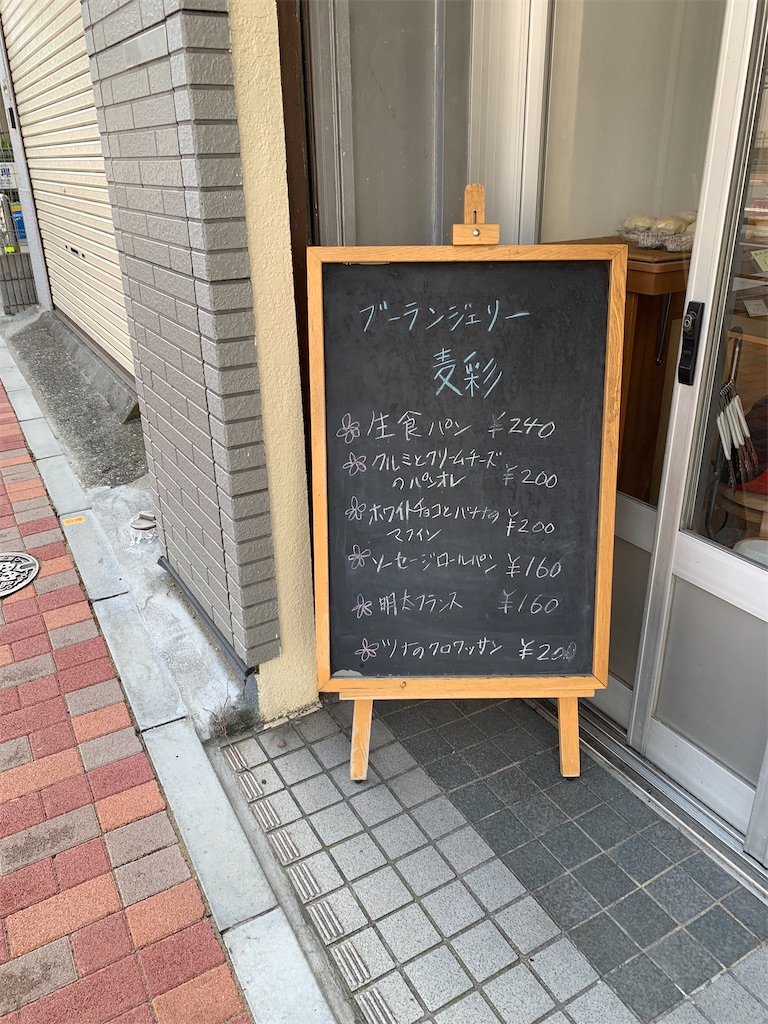 ブーランジェリー
麦彩
生食パン ¥240
クルミとクリームチーズ
のパンオレ ¥200
ホワイトチョコとバナナの
マフィン ¥200
ソーセージロールパン ¥160
明太フランス ¥160
ツナのクロワッサン ¥200